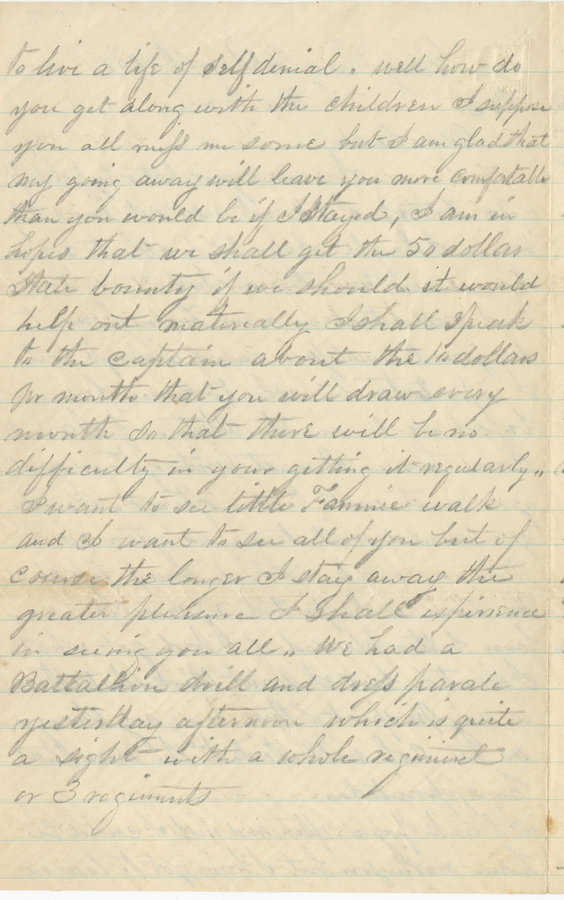 to live a life of self denial. well how do
you get along with the children I suppose
you all miss me some but I am glad that
my going away will leave you more comfortable
than you would be if I stayed, I am in
hopes that we shall get the 50 dollar
State bounty if we should it would
help out materially I shall speak
to the Captain about the 10 dollars
pr month that you will draw every
month so that there will be no
difficulty in your getting it regularly,,
I want to see little Fannie walk
and I want to see all of you but of
course the longer I stay away the
greater pleasure I shall experience
in seeing you all,, We had a
Battallion drill and dress parade
yesterday afternoon which is quite
a sight with a whole regiment
or 3 regiments